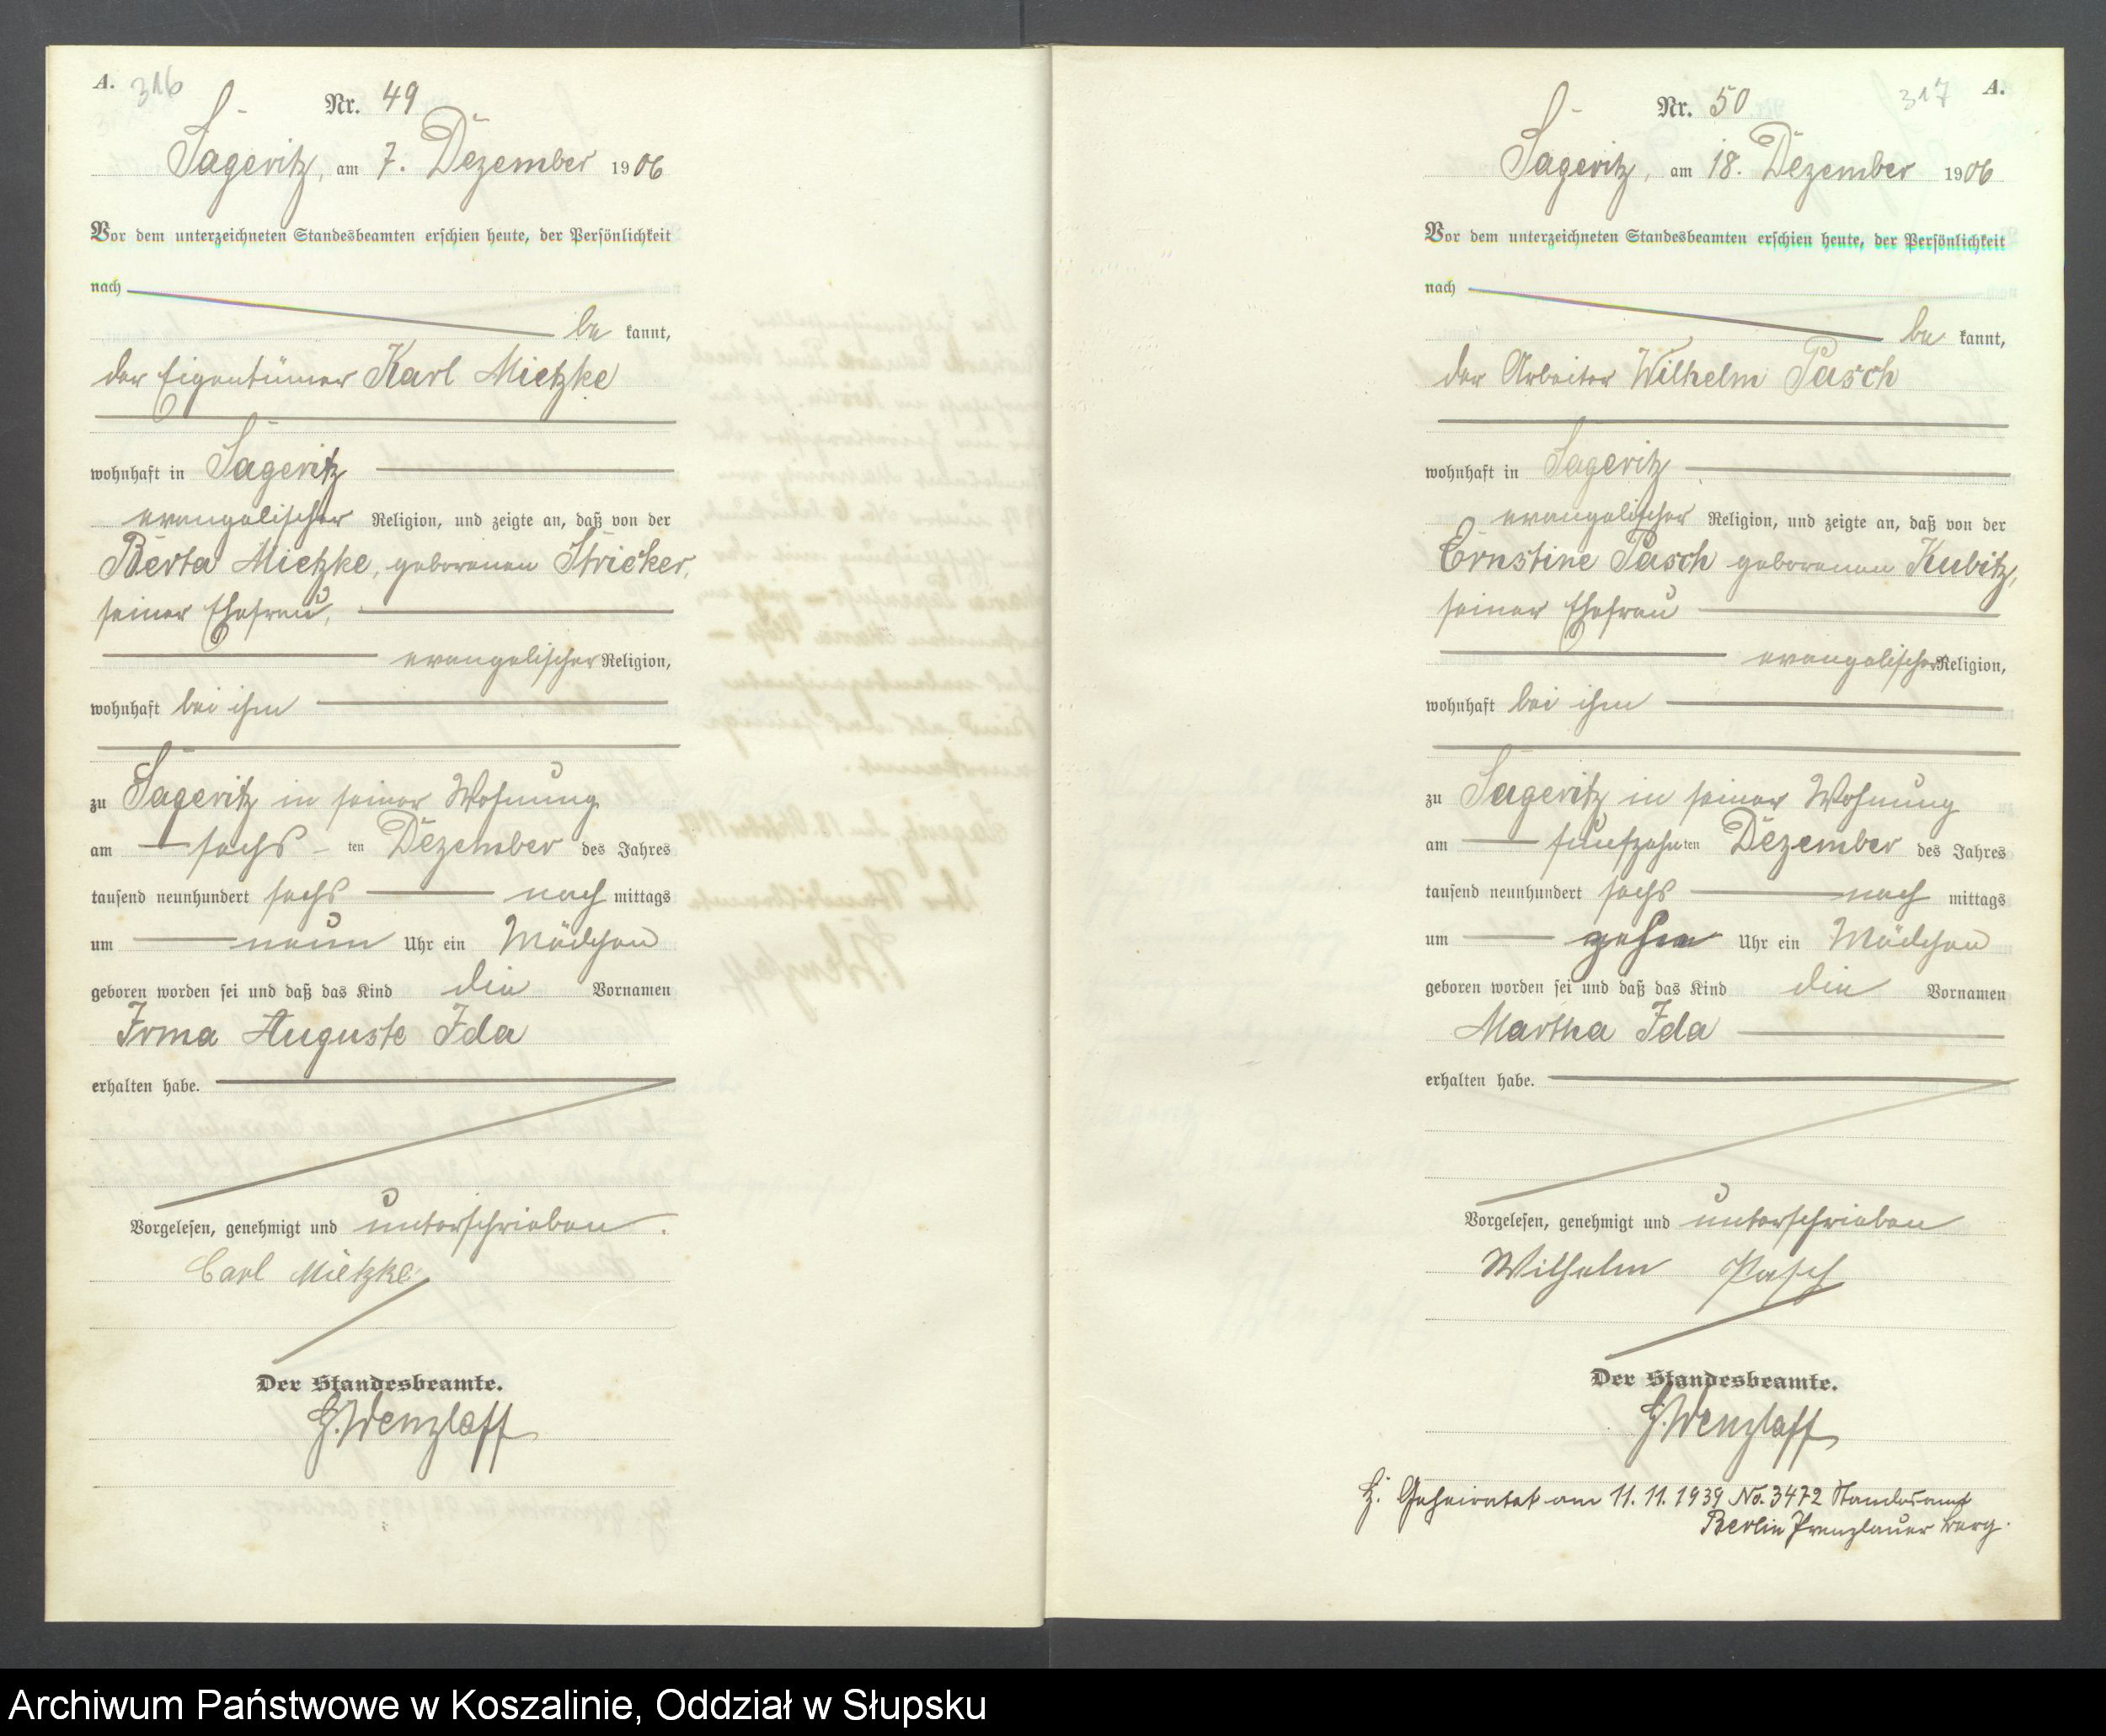 A. 316
Nr. 49
Sageritz, am 7. Dezember 1906
Vor dem unterzeichneten Standesbeamten erschien heute, der Persönlichkeit
nach
be kannt,
der Eigentümer Karl Mietzke
wohnhaft in Sageritz
evangelischer Religion, und zeigte an, daß von der
Berta Mietzke, geborenen Stricker,
seiner Ehefrau,
evangelischer Religion,
wohnhaft bei ihm
zu Sageritz in seiner Wohnung
am sechs ten Dezember des Jahres
tausend neunhundert sechs nach mittags
um neun Uhr ein Mädchen
geboren worden sei und daß das Kind die Vornamen
Irma Auguste Ida
erhalten habe.
Vorgelesen, genehmigt und unterschrieben.
Carl Mietzke
Der Standesbeamte.
H. Wenzlaff
317 A.
Nr. 50
Sageritz, am 18. Dezember 1906
Vor dem unterzeichneten Standesbeamten erschien heute, der Persönlichkeit
nach
be kannt,
der Arbeiter Wilhelm Pasch
wohnhaft in Sageritz
evangelischer Religion, und zeigte an, daß von der
Ernstine Pasch geborenen Kubitz,
seiner Ehefrau
evangelischer Religion,
wohnhaft bei ihm
zu Sageritz in seiner Wohnung
am fünfzehnten Dezember des Jahres
tausend neunhundert sechs nach mittags
um zehn Uhr ein Mädchen
geboren worden sei und daß das Kind die Vornamen
Martha Ida
erhalten habe.
Vorgelesen, genehmigt und unterschrieben
Wilhelm Pasch
Der Standesbeamte.
H. Wenzlaff
H. Geheiratet am 11.11.1939 No. 3472 Standesamt
Berlin Prenzlauer Berg.
Archiwum Państwowe w Koszalinie, Oddział w Słupsku